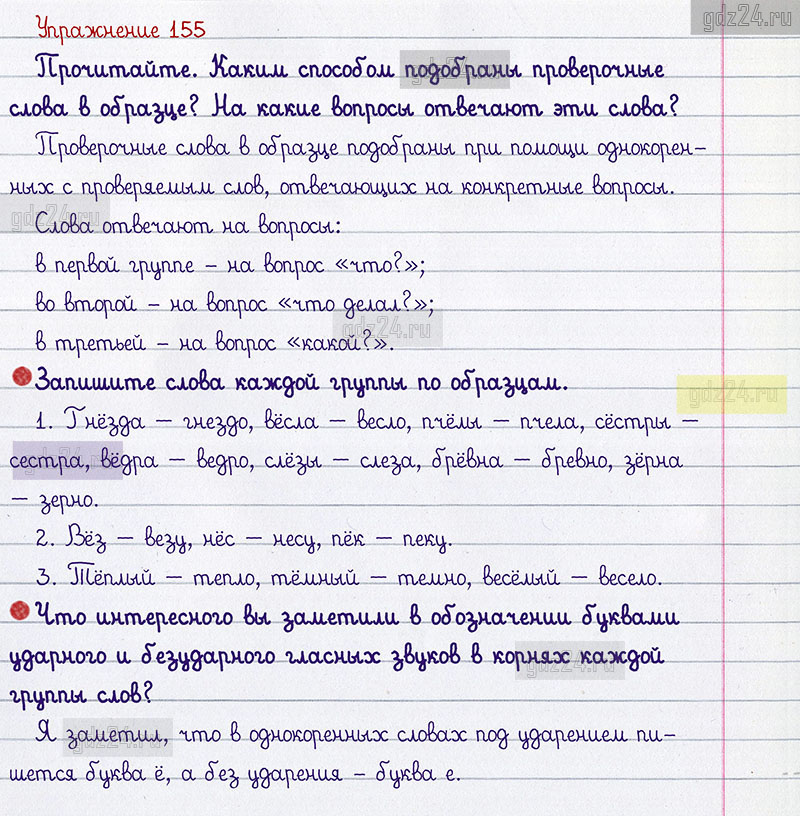 gdz24.ru
Упражнение 155
Прочитайте. Каким способом подобраны проверочные
слова в образце? На какие вопросы отвечают эти слова?
Проверочные слова в образце подобраны при помощи однокорен-
ных с проверяемым слов, отвечающих на конкретные вопросы.
gdz24.ru
Слова отвечают на вопросы:
в первой группе – на вопрос «что?»;
во второй – на вопрос «что делал?»;
gdz24.ru
в третьей – на вопрос «какой?».
Запишите слова каждой группы по образцам.
gdz24.ru
1. Гнёзда – гнездо, вёсла – весло, пчёлы – пчела, сёстры –
сестра, вёдра – ведро, слёзы – слеза, брёвна – бревно, зёрна
– зерно.
2. Вёз – везу, нёс – несу, пёк – пеку.
3. Тёплый – тепло, тёмный – темно, весёлый – весело.
Что интересного вы заметили в обозначении буквами
ударного и безударного гласных звуков в корнях каждой
группы слов?
Я заметил, что в однокоренных словах под ударением пи-
шется буква ё, а без ударения – буква е.